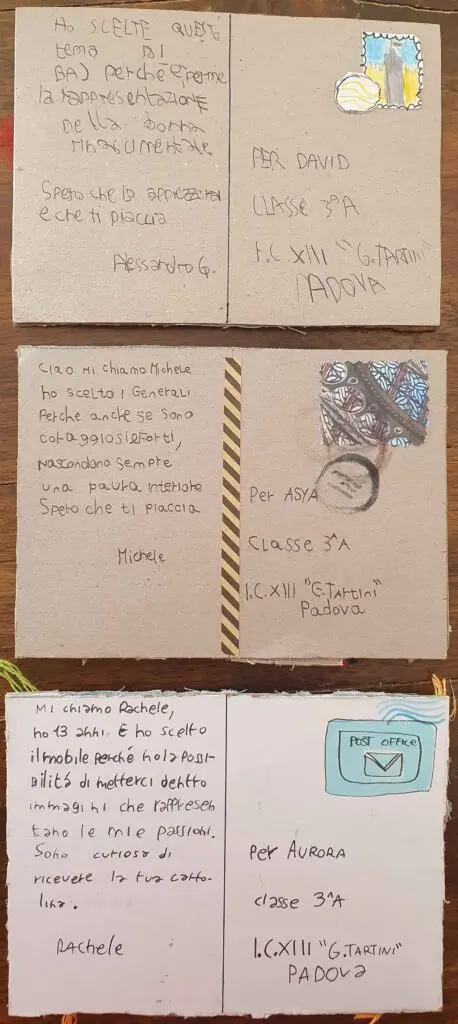 Ho SCELTE QUESTO
tema DI
BAJ perché è, per me
la rappresentazione
Della donna
rinascimentale
Spero che lo apprezzerai
e che ti piaccia
Alessandro G.
PER DAVID
CLASSE 3ªA
I.C XIII "G.TARTINI"
PADOVA
Ciao Mi chiamo Michele
ho scelto I Generali
Perche anche se sono
coraggiosi e forti,
nascondono sempre
una paura interiore
Spero che ti piaccia
Michele
Per ASYA
Classe 3^A
I.C.XIII "G.TArtini"
Padova
Mi chiamo Rachele,
ho 13 anni. E ho scelto
il mobile perché ho la possi-
bilitá di metterci dentro
immagini che rappresen
tano le mie passioni.
Sono curiosa di
ricevere la tua carto-
lina.
RAchele
POST OFFICE
per AURORA
classe 3^A
I.C.XIII "G.TARTINI"
PADOVA